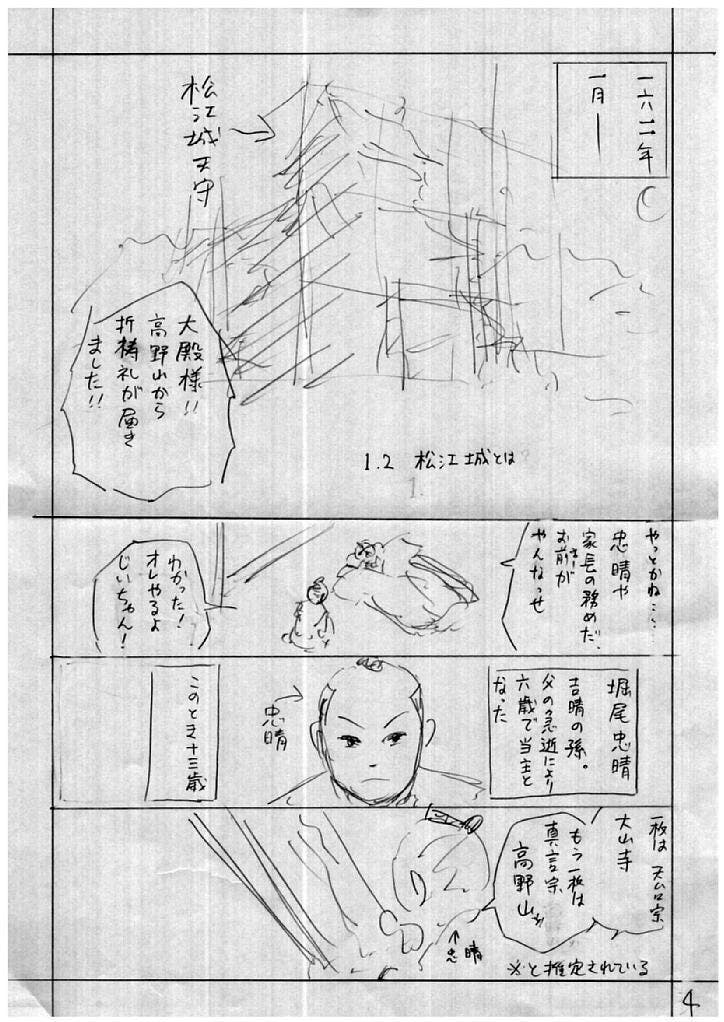 一六一一年
一月―
松江城天守
大殿様!!
高野山から
祈祷札が届き
ました!!
1.2 松江城とは
1.
やっとかね…
忠晴や
家長の務めだ、
お前が
やんなっせ
わかった!
オレやるよ
じいちゃん!
堀尾忠晴
吉晴の孫。
父の急逝により
六歳で当主と
なった
忠晴
このとき十三歳
一枚は 天台宗
大山寺
もう一枚は
真言宗
高野山か
忠晴
※と推定されている
4